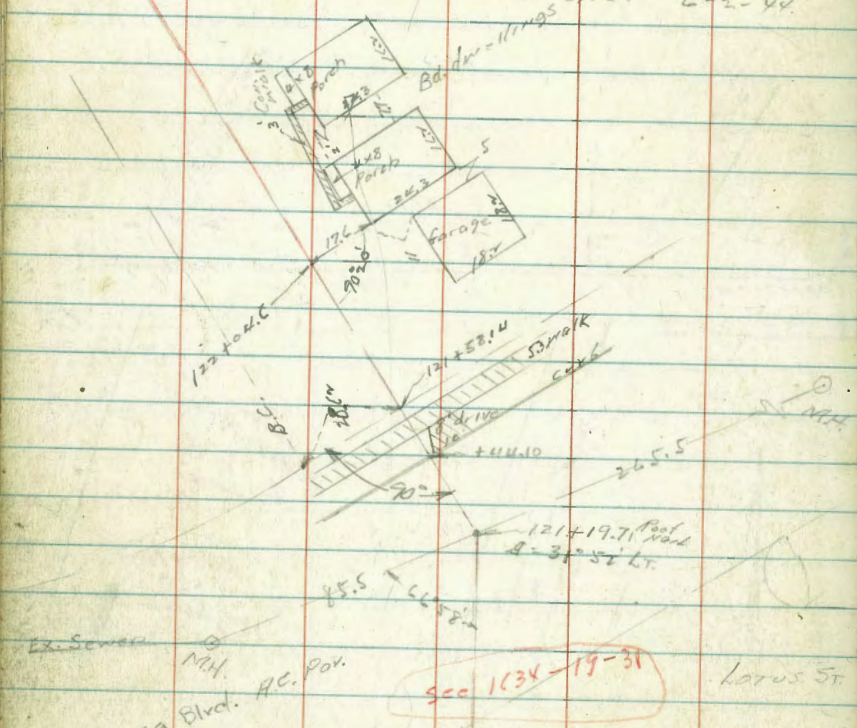 6-2-44.
Bd. dw = 1 lings
Conc. Walk
4x8
Porch
3'
24.3
4x8
Porch
24.3
5
Garage
18.2
11
17.6
90° 20'
122+04.6
121+58.14
5.3 walk
curb
B.C.
28.62
8' drive
+44.10
M.H.
265.5
90°
121+19.71 Point
Δ = 31° 51' LT.
85.5
66° 58'
Ex. Sewer
M.H.
Blvd. A.C. Pav.
See 1634-19-31
LOTUS ST.